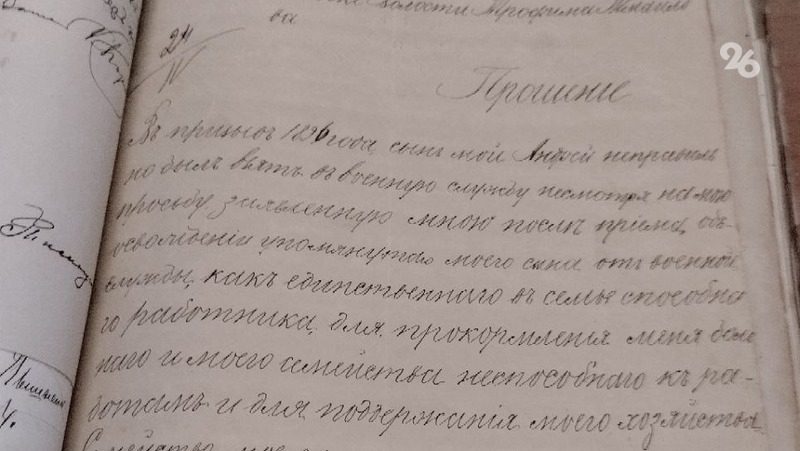 волости Трофима Михайло
ва
24
IV
26
Прошение
Въ призывъ 1896 года сынъ мой Андрей неправиль
но былъ взятъ въ военную службу несмотря на мою
просьбу заявленную мною после приема, объ
освобождении упомянутаго моего сына отъ военной
службы, какъ единственнаго въ семье способна
го работника, для прокормления меня боль
наго и моего семейства неспособнаго къ ра-
ботамъ и для поддержания моего хозяйства.
Семейство